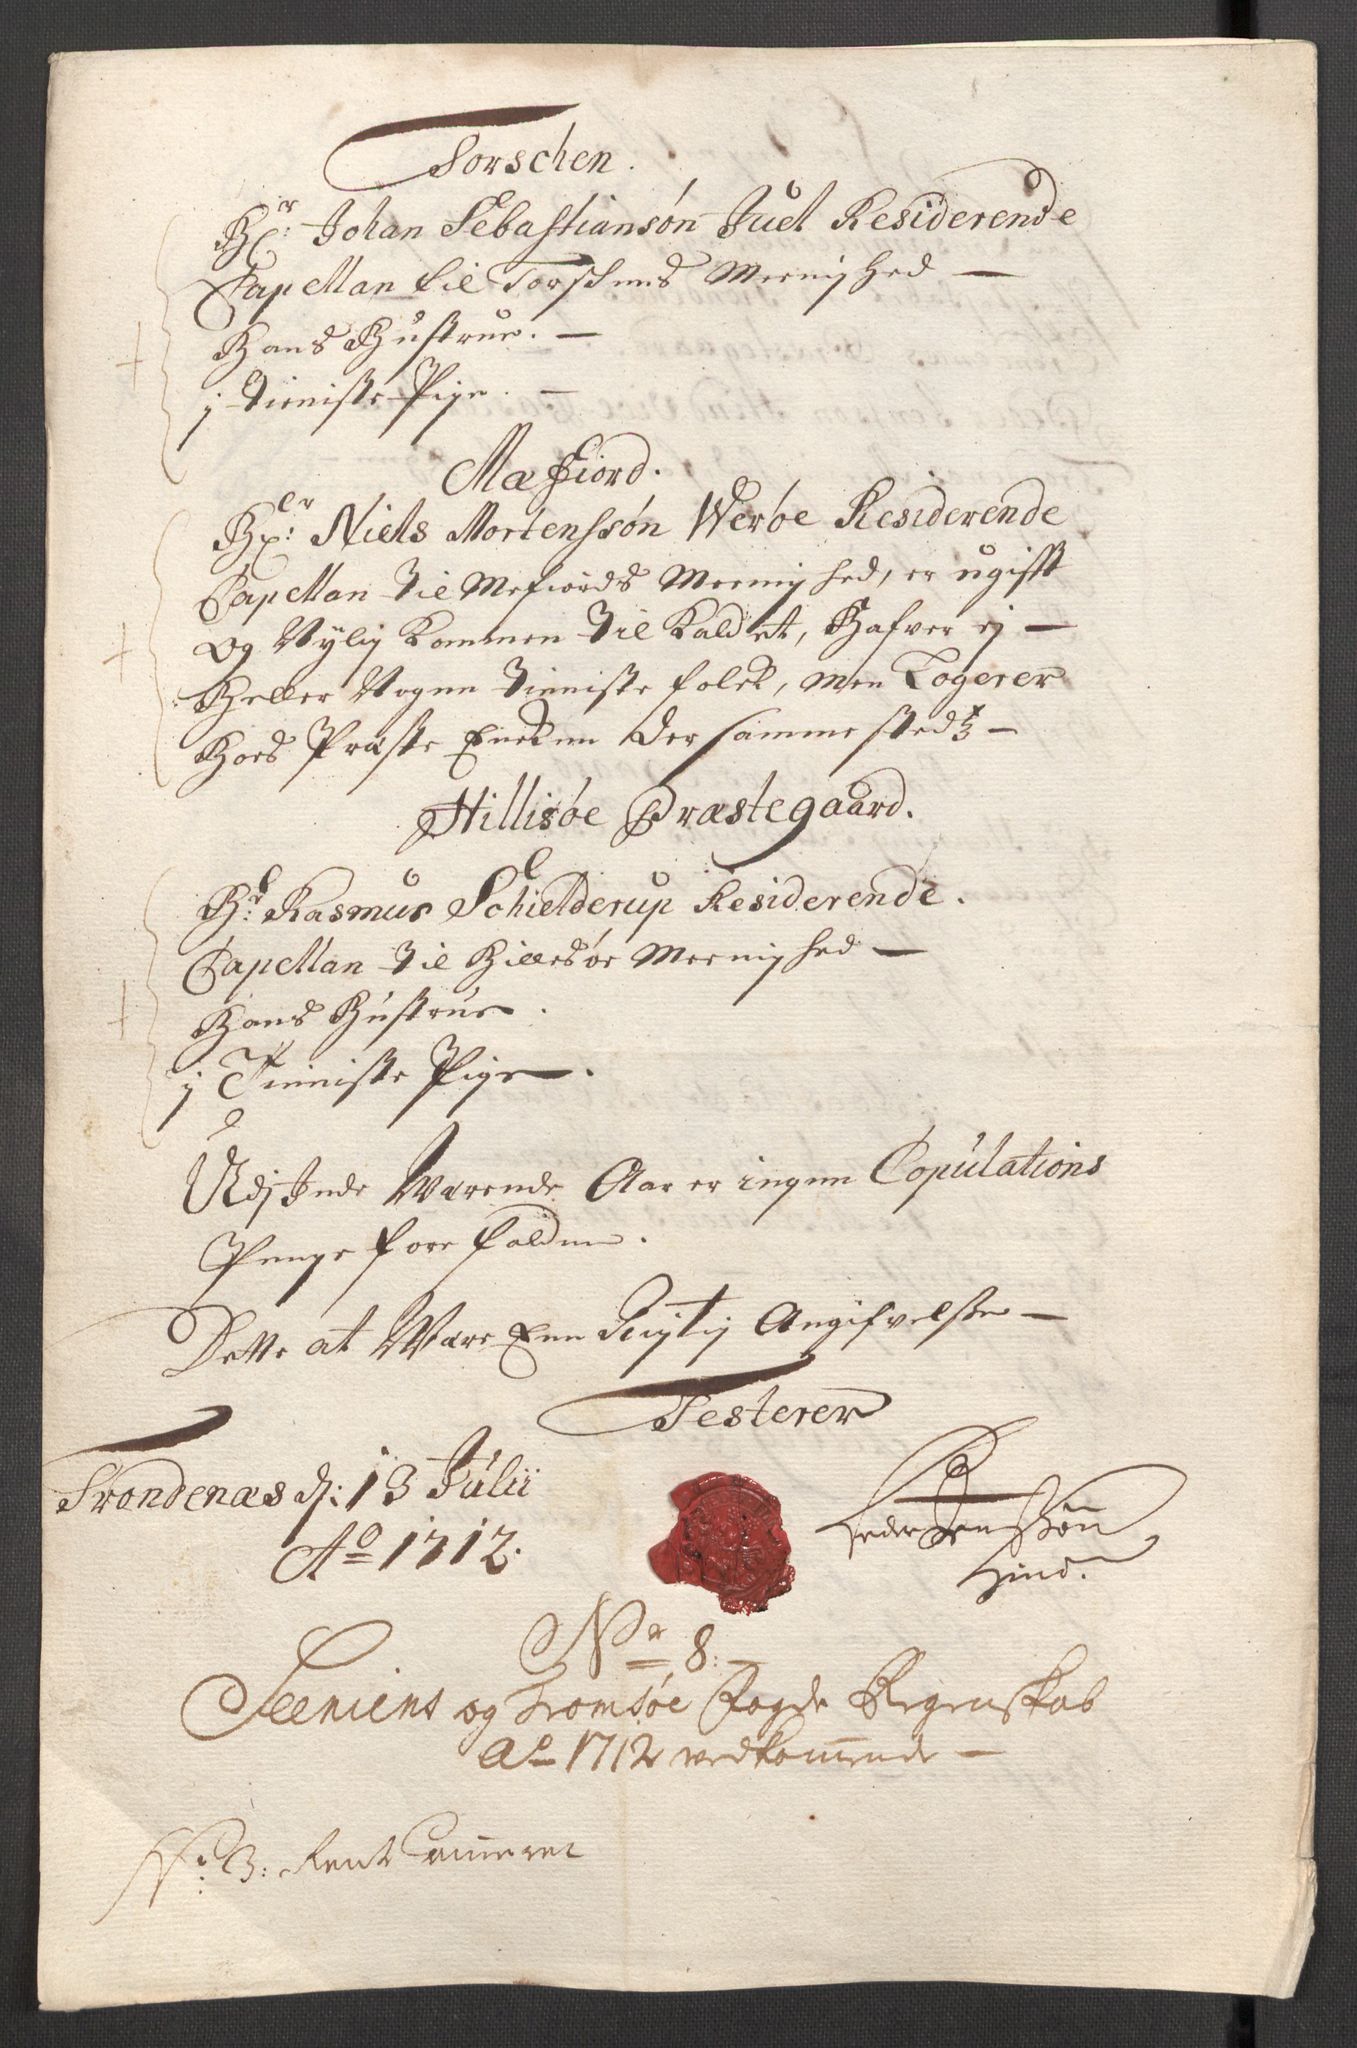 Torschen.
Hr: Johan Sebastiansøn Juel Residerende
Capellan til Torschens Meenighed —
Hans Hustrue. —
j Tieniste Pige. —
Mæfiord.
Hr: Niels Mortenssøn Werøe Residerende
Capellan til Mefiords Meenighed, er ugifft
og Nylig kommen til kaldet, Hafver ej —
Heller Nogen tieniste folck, men Logerer
Hoes Præste Encken der sammestedz —
Hillisøe Præstegaard.
Hr: Rasmus Schielderup Residerende.
Capellan til Hillesøe Meenighed —
Hans Hustrue.
j Tieniste Pige.
Udj Inde Værende Aar er ingen Copulations
Penge forefalden.
Dette at Være Een Rigtig Angifvelse —
Testerer
Trondenæs d: 13 Julii
Ao 1712.
Peder Jenssøn
Hind.
No 8:
Seeniens og Tromsøe Fogde Regenskab
Ao 1712 vedkommende —
No: 3: Rent Cammeret